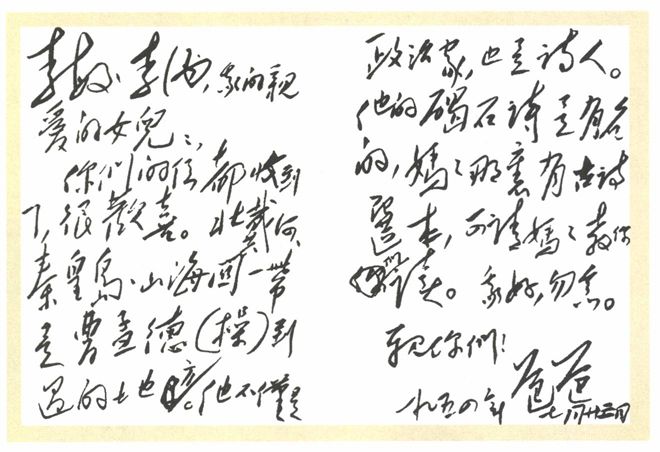 李敏、李讷，我的亲
爱的女兒：
你们的信都收到
了，很歡喜。北戴河、
秦皇島、山海関一带
是曹孟德（操）到
过的地方。他不僅是
政治家，也是诗人。
他的碣石诗是有名
的，媽媽那裏有古诗
選本，可请媽媽教你
们读。我好，勿念。
親你們！
爸爸
一九五四年
七月廿三日